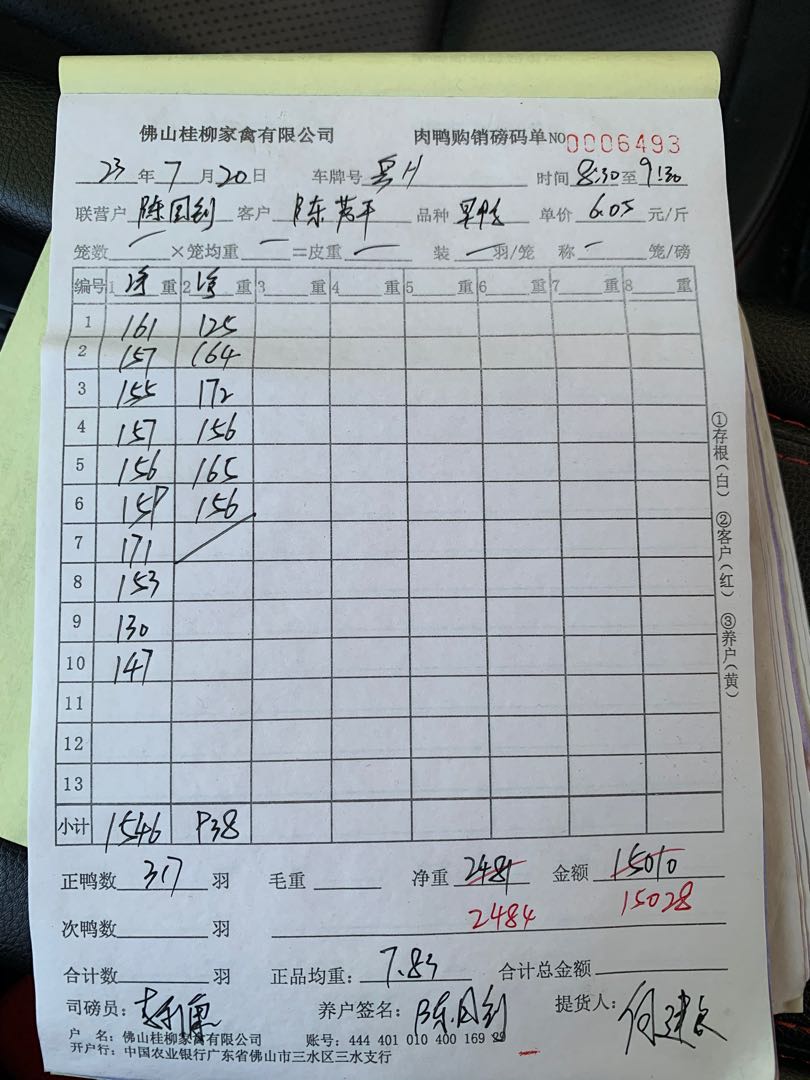 佛山桂柳家禽有限公司 肉鸭购销磅码单 NO 0006493
23年7月20日 车牌号 时间 8:30至9:30
联营户 陈国钊 客户 陈 平 品种 单价 6.05 元/斤
笼数 一 ×笼均重 一 =皮重 一 装 一 羽/笼 称 一 笼/磅
编号 1 净 重 2 净 重 3 重 4 重 5 重 6 重 7 重 8 重
1 161 125
2 157 164
3 155 172
4 157 156
5 156 165
6 159 156
7 171
8 153
9 130
10 147
11
12
13
小计 1546 938
正鸭数 317 羽 毛重 净重 2481 金额 15010
次鸭数 羽 2484 15028
合计数 羽 正品均重: 7.83 合计总金额
司磅员: 养户签名: 陈国钊 提货人:
户 名: 佛山桂柳家禽有限公司 账号: 444 401 010 400 169 29
开户行: 中国农业银行广东省佛山市三水区三水支行
①存根(白) ②客户(红) ③养户(黄)